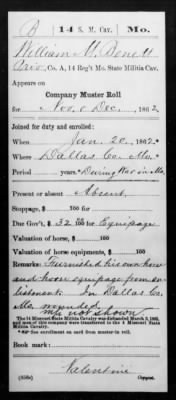 B | 14 S. M. Cav. | Mo.
William M. Benett
Priv., Co. A, 14 Reg't Mo. State Militia Cav.
Appears on
Company Muster Roll
for Nov. & Dec., 1862
Joined for duty and enrolled:
When Jan. 20, 1862.
Where Dallas Co. Mo.
Period years. "During War in Mo.
Present or absent Absent
Stoppage, $ 100 for
Due Gov't, $ 32 100 for Equipage
Valuation of horse, $ 100
Valuation of horse equipments, $ 100
Remarks: Furnished his own horse
and horse equipage from en-
listment. In Dallas Co.
Mo. wounded
not shown
The 14 Missouri State Militia Cavalry was disbanded March 3, 1863,
and men of this company were transferred to the 4 Missouri State
Militia Cavalry.
*See enrollment on card from muster-in roll.
Book mark:
Valentine
(858c) Copyist.